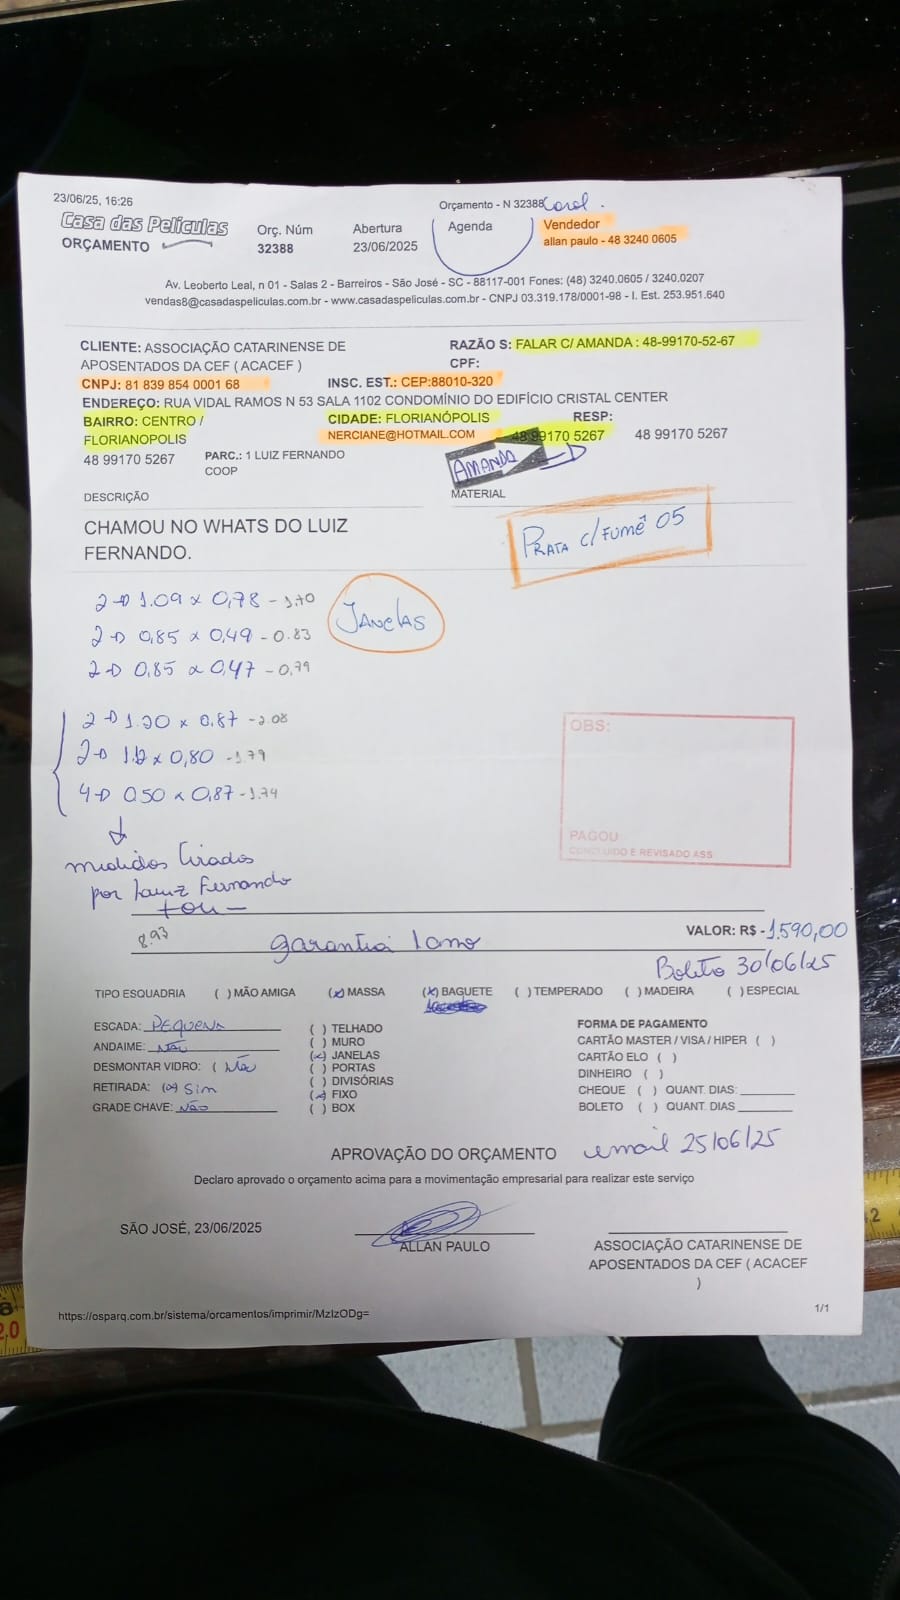 23/06/25, 16:26
Orçamento - N 32388
Casa das Películas
ORÇAMENTO
Orç. Núm
32388
Abertura
23/06/2025
Agenda
Vendedor
allan paulo - 48 3240 0605
Av. Leoberto Leal, n 01 - Salas 2 - Barreiros - São José - SC - 88117-001 Fones: (48) 3240.0605 / 3240.0207
vendas8@casadaspeliculas.com.br - www.casadaspeliculas.com.br - CNPJ 03.319.178/0001-98 - I. Est. 253.951.640
CLIENTE: ASSOCIAÇÃO CATARINENSE DE
APOSENTADOS DA CEF ( ACACEF )
RAZÃO S: FALAR C/ AMANDA : 48-99170-52-67
CPF:
CNPJ: 81 839 854 0001 68
INSC. EST.: CEP:88010-320
ENDEREÇO: RUA VIDAL RAMOS N 53 SALA 1102 CONDOMÍNIO DO EDIFÍCIO CRISTAL CENTER
BAIRRO: CENTRO /
FLORIANOPOLIS
CIDADE: FLORIANÓPOLIS
RESP:
NERCIANE@HOTMAIL.COM
48 99170 5267
48 99170 5267
48 99170 5267
PARC.: 1 LUIZ FERNANDO
COOP
AMANDA
DESCRIÇÃO
MATERIAL
CHAMOU NO WHATS DO LUIZ
FERNANDO.
PRATA c/FUMÊ 05
2 → 1.09 x 0,78 - 1.70
JANELAS
2 → 0,85 x 0,49 - 0.83
2 → 0,85 x 0,47 - 0,79
2 → 1.20 x 0,87 - 2.08
2 → 1.2 x 0,80 - 1.79
4 → 0,50 x 0,87 - 1.74
OBS:
PAGOU
CONCLUIDO E REVISADO ASS
medidas tiradas
por Luiz Fernando
8.93
garantia 1 ano
VALOR: R$ - 1.590,00
Boleto 30/06/25
TIPO ESQUADRIA ( ) MÃO AMIGA (x) MASSA (x) BAGUETE ( ) TEMPERADO ( ) MADEIRA ( ) ESPECIAL
ESCADA: PEQUENA
ANDAIME: NÃO
DESMONTAR VIDRO: ( Não
RETIRADA: (x) Sim
GRADE CHAVE: NÃO
( ) TELHADO
( ) MURO
(x) JANELAS
( ) PORTAS
( ) DIVISÓRIAS
(x) FIXO
( ) BOX
FORMA DE PAGAMENTO
CARTÃO MASTER / VISA / HIPER ( )
CARTÃO ELO ( )
DINHEIRO ( )
CHEQUE ( ) QUANT. DIAS:
BOLETO ( ) QUANT. DIAS
APROVAÇÃO DO ORÇAMENTO
email 25/06/25
Declaro aprovado o orçamento acima para a movimentação empresarial para realizar este serviço
SÃO JOSÉ, 23/06/2025
ALLAN PAULO
ASSOCIAÇÃO CATARINENSE DE
APOSENTADOS DA CEF ( ACACEF
)
https://osparq.com.br/sistema/orcamentos/imprimir/MzIzODg=
1/1